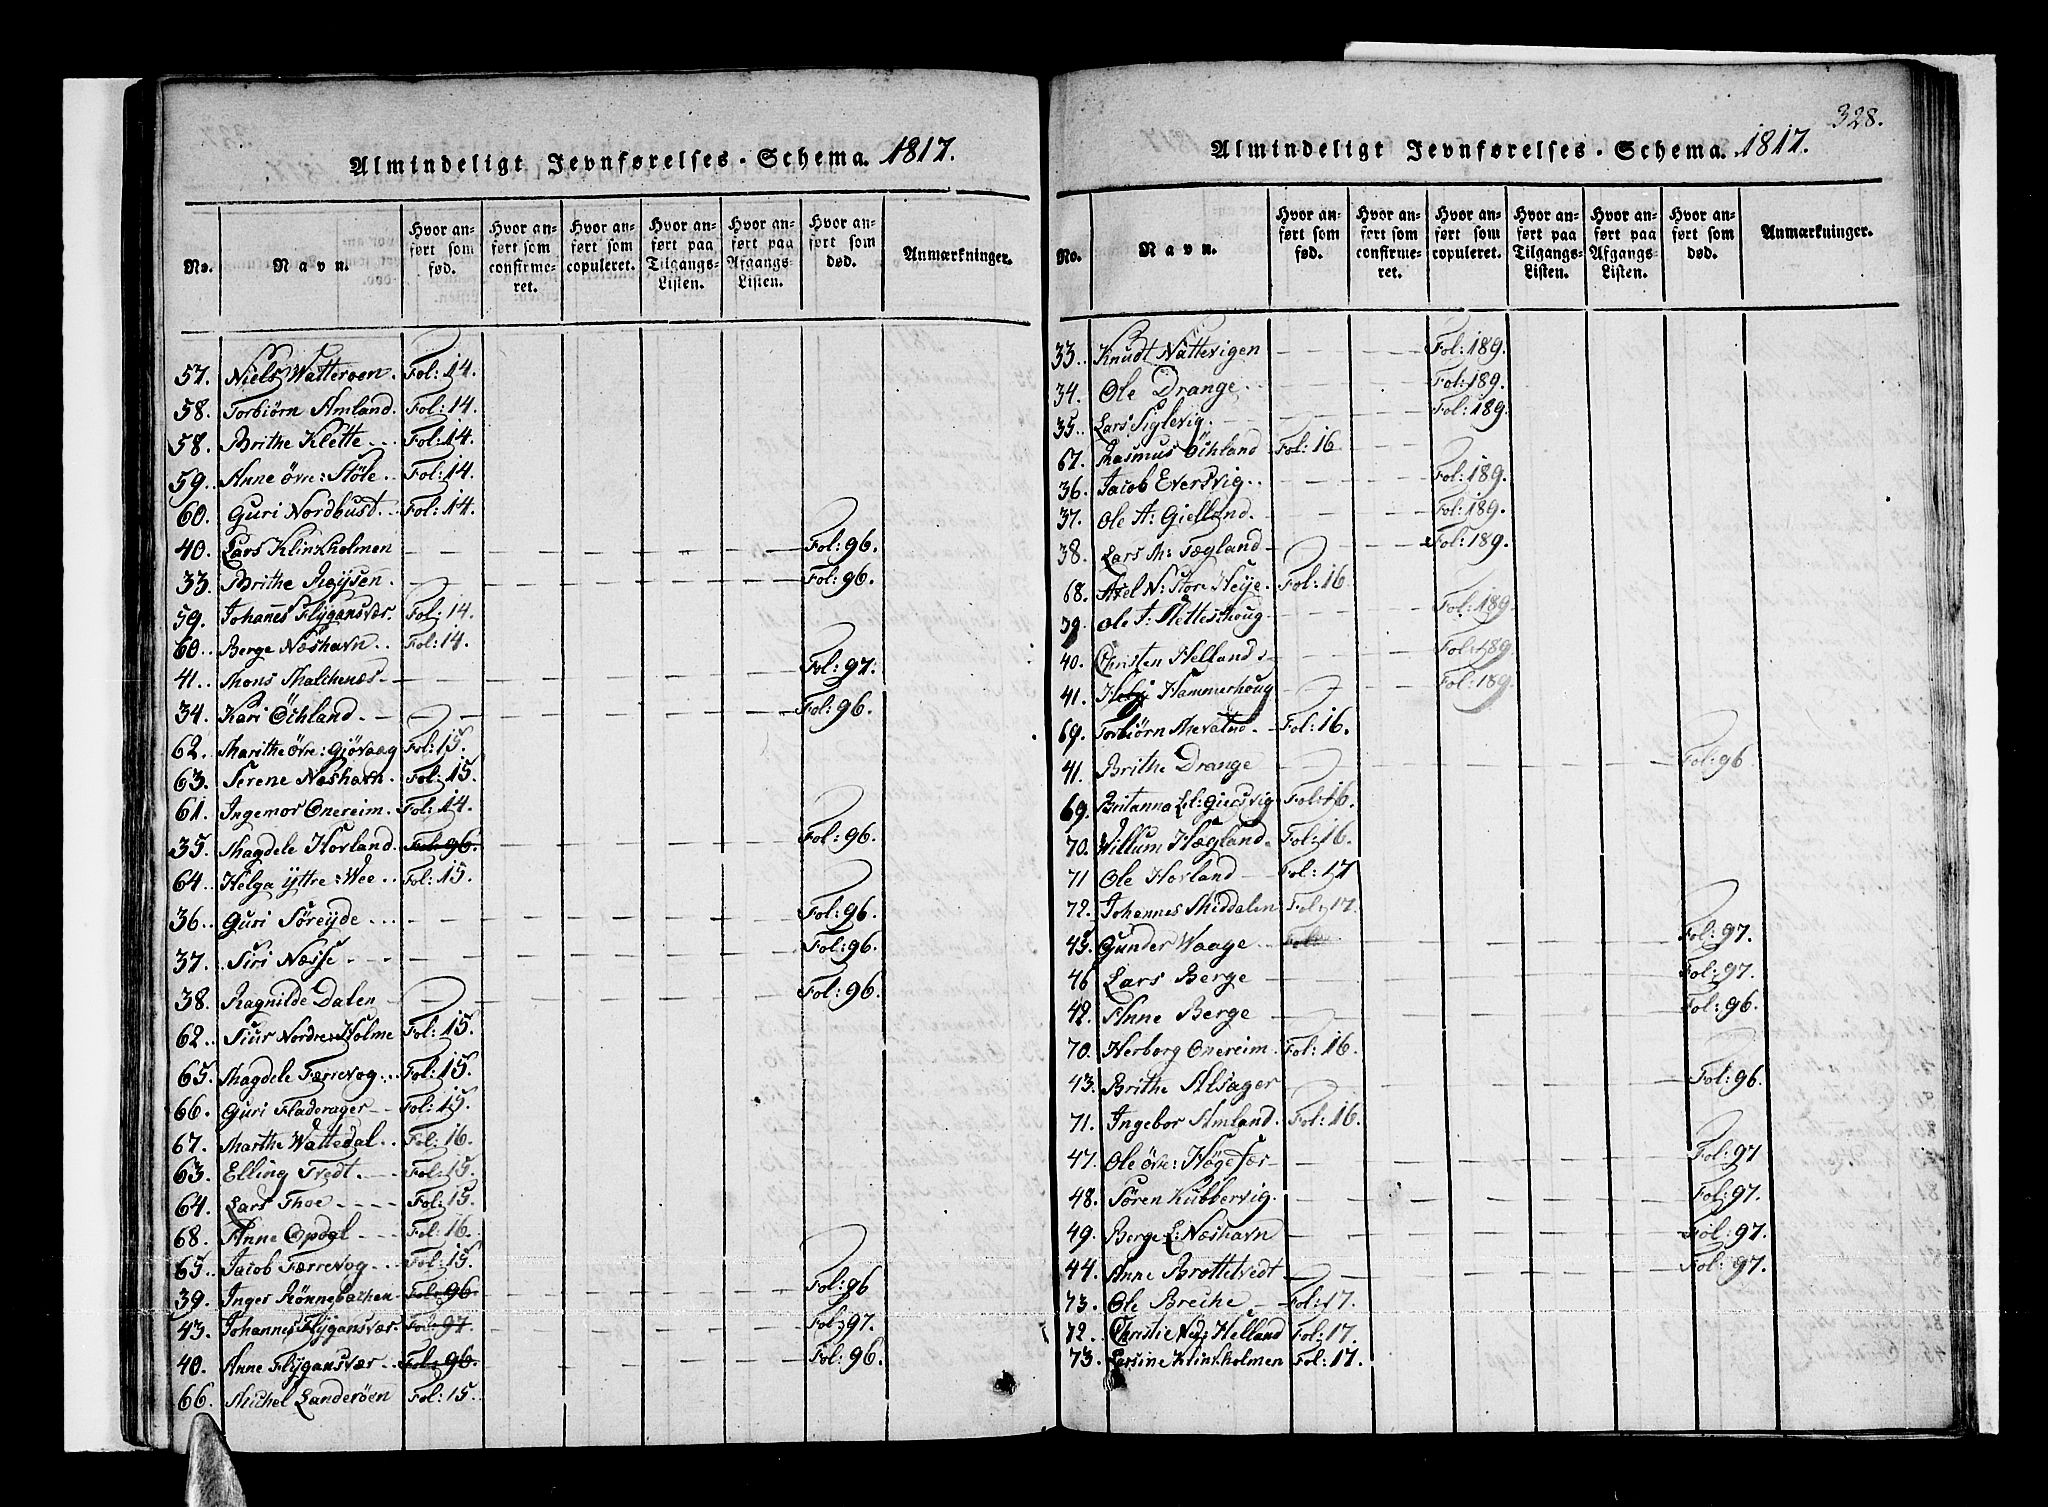 Almindeligt Jevnførelses-Schema. 1817.
No. Navn. Hvor anført som fød. Hvor anført som confirmeret. Hvor anført som copuleret. Hvor anført paa Tilgangs-Listen. Hvor anført paa Afgangs-Listen. Hvor anført som død. Anmærkninger.
57. Niels Watteroen. Fol: 14.
58. Torbiørn Amland. Fol: 14.
58. Brithe Klette Fol: 14.
59. Anne övre: Stöle Fol: 14.
60. Guri Nordhust. Fol: 14.
40. Lars Klinkholmen Fol: 96.
33 Brithe Fol: 96.
59. Johannes Flygansvær. Fol: 14
60. Berge Næshavn Fol: 14.
41. Mons Malchenæs Fol: 97.
34. Kari Öchland Fol: 96.
62. Marithe övre: Gjövaag Fol: 15.
63. Serene Næshavn Fol: 15.
61. Ingemor Onereim. Fol: 14.
35. Magdele Hovland. Fol: 96. Fol: 96.
64. Helga yttre: Wee Fol: 15.
36. Guri Söreyde Fol: 96.
37. Siri Næsse Fol: 96.
38. Ragnilde Dalen Fol: 96.
62. Siur Nordre: Holme Fol: 15.
65. Magdele Færrevog Fol: 15.
66. Guri Fladerager Fol: 15.
67. Marthe Wattedal. Fol: 16.
63. Elling Tvedt. Fol: 15.
64. Lars Thoe Fol: 15.
68. Anne Opdal Fol: 16.
65. Jacob Færrevog Fol: 15.
39. Inger Rönnebachen Fol: 96 Fol: 96
43. Johannes Flygansvær. Fol: 97. Fol: 97.
40. Anne Flygansvær Fol: 96. Fol: 96.
66. Michel Landeröen Fol: 15.
328.
Almindeligt Jevnførelses-Schema. 1817.
No. Navn. Hvor anført som fød. Hvor anført som confirmeret. Hvor anført som copuleret. Hvor anført paa Tilgangs-Listen. Hvor anført paa Afgangs-Listen. Hvor anført som død. Anmærkninger.
33. Knudt Nattevigen Fol: 189.
34. Ole Drange Fol: 189.
35. Lars Siglevig. Fol: 189.
67. Rasmus Öchland Fol: 16
36. Jacob Eversvig. Fol: 189.
37. Ole A: Gielland. Fol: 189.
38. Lars M: Tægland Fol: 189.
68. Axel N: Store Heye. Fol: 16
39. Ole J: Metteschoug Fol: 189.
40. Christen Helland Fol: 189.
41. Helge Hammerhoug Fol: 189.
69. Torbiørn Fol: 16.
41. Brithe Drange Fol: 96
69. Britanna Lil: Giersvig Fol: 16.
70. Willum Hægland. Fol: 16.
71 Ole Hovland Fol: 17
72. Johannes Middalen Fol: 17.
45. Gunder Waage Fol: Fol: 97.
46 Lars Berge Fol: 97.
42. Anne Berge Fol: 96.
70. Herborg Onereim. Fol: 16.
43. Brithe Alsager Fol: 96.
71. Ingebor Amland. Fol: 16.
47. Ole övre: Högesær Fol: 97
48. Sören Kubbervig. Fol: 97.
49. Berge L: Næshavn Fol: 97.
44. Anne Brottetvedt Fol: 97.
73. Ole Breche Fol: 17.
72. Christie Ned: Helland Fol: 17.
73. Lersine Klinkholmen Fol: 17.